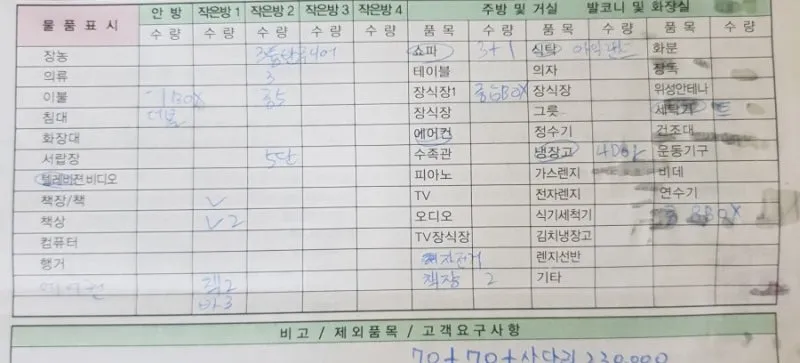 물품표시 안방 작은방 1 작은방 2 작은방 3 작은방 4 주방 및 거실 발코니 및 화장실
수량 수량 수량 수량 수량 품목 수량 품목 수량 품목 수량
장농 쇼파 3+1 식탁 화분
의류 3 테이블 의자 장독
이불 1 BOX 중5 장식장1 중 BOX 장식장 위성안테나
침대 더블 장식장 그릇 세탁기
화장대 에어컨 정수기 건조대
서랍장 5단 수족관 냉장고 운동기구
텔레비젼비디오 피아노 가스렌지 비데
책장/책 TV 전자렌지 연수기
책상 2 오디오 식기세척기 BOX
컴퓨터 TV장식장 김치냉장고
행거 자전거 렌지선반
에어컨 책장 2 기타
비고 / 제외품목 / 고객요구사항
70+70+사다리 230,000